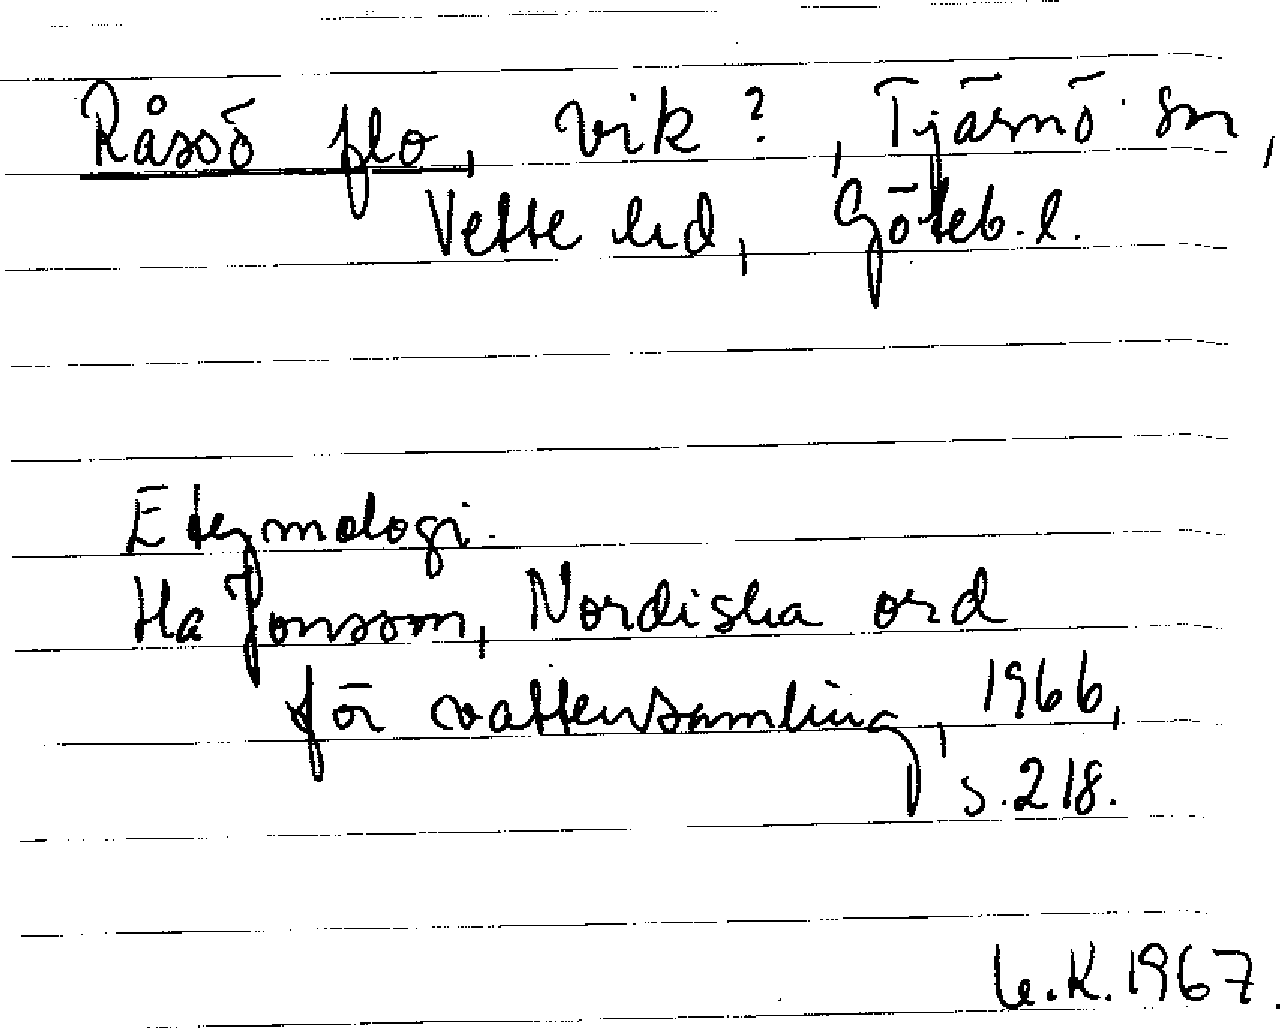 Råssö flo, vik?, Tjärnö sn,
Vette hd, Göteb. l.
Etymologi.
Ha Jonsson, Nordiska ord
för vattensamling, 1966,
s. 218.
K. 1967.